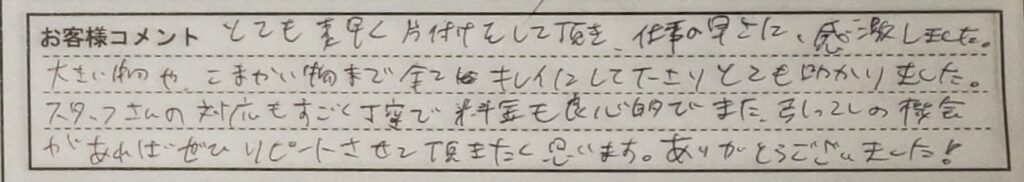 お客様コメント とても素早く片付けをして頂き、仕事の早さに、感激しました。
大きい物や、こまかい物まで全てキレイにして下さりとても助かりました。
スタッフさんの対応もすごく丁寧で料金も良心的でまた、引っこしの機会
があればぜひリピートさせて頂きたく思います。ありがとうございました!